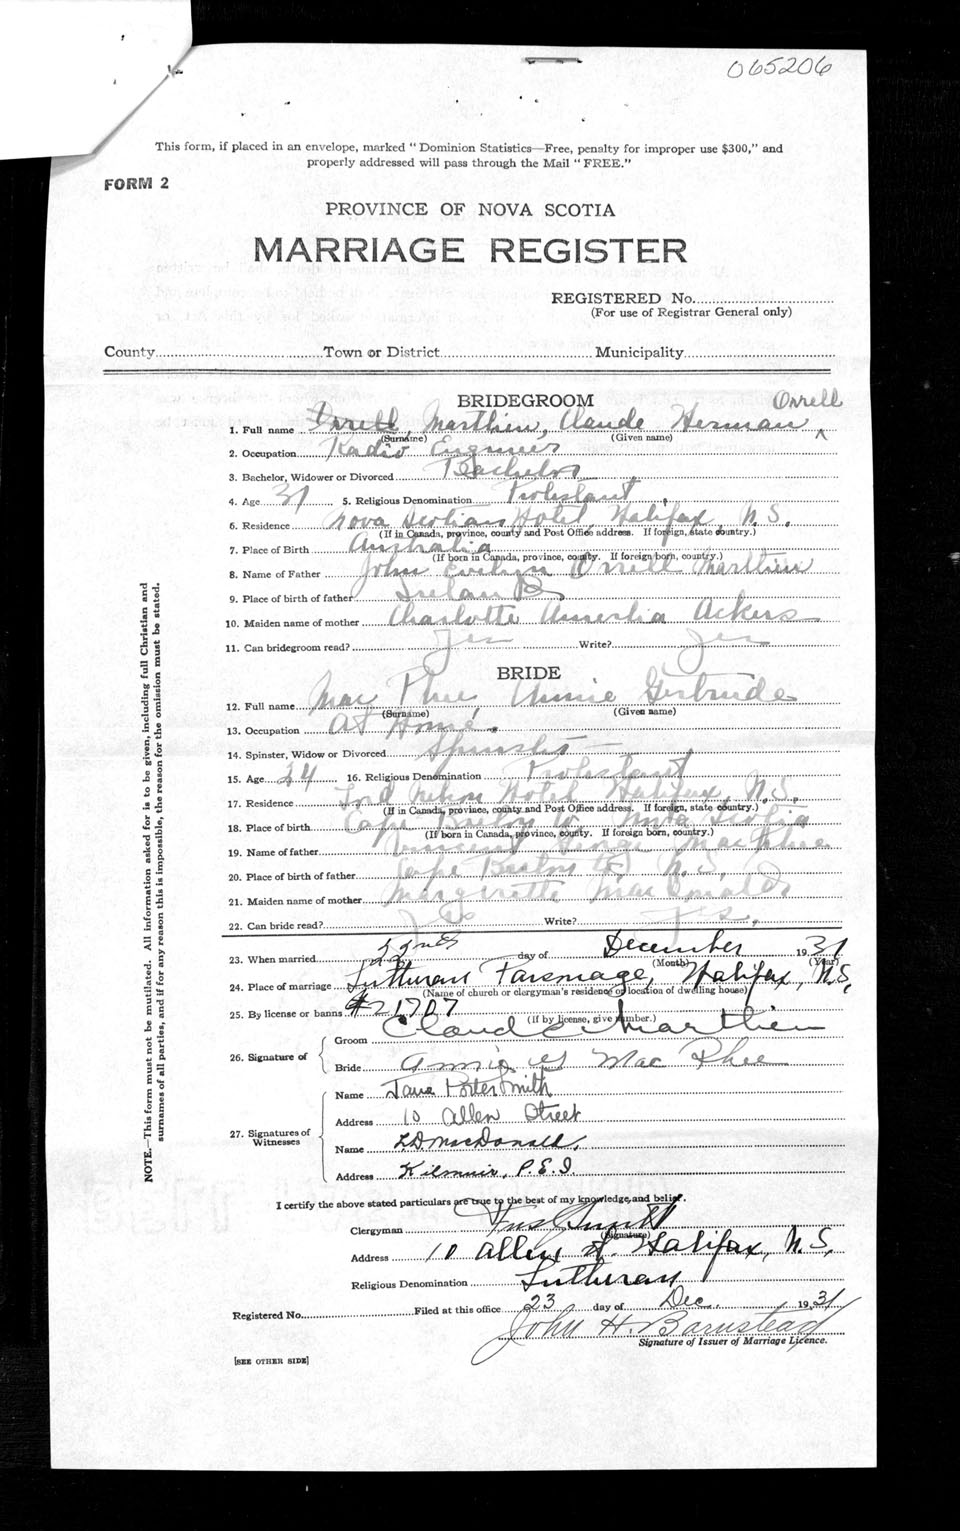 065206
This form, if placed in an envelope, marked "Dominion Statistics—Free, penalty for improper use $300," and
properly addressed will pass through the Mail "FREE."
FORM 2
PROVINCE OF NOVA SCOTIA
MARRIAGE REGISTER
REGISTERED No.
(For use of Registrar General only)
County Town or District Municipality
BRIDEGROOM
Orrell
1. Full name Orrell, Marthin, Claude Herman ^
(Surname) (Given name)
2. Occupation Radio Engineer
3. Bachelor, Widower or Divorced Bachelor
4. Age 31 5. Religious Denomination Protestant
6. Residence Nova Scotian Hotel, Halifax, N.S.
(If in Canada, province, county and Post Office address. If foreign, state country.)
7. Place of Birth Australia
(If born in Canada, province, county. If foreign born, country.)
8. Name of Father John Evelyn Orrell Marthin
9. Place of birth of father Ireland
10. Maiden name of mother Charlotte Amelia Ackers
11. Can bridegroom read? Yes Write? Yes
BRIDE
12. Full name Mac Phee, Annie Gertrude
(Surname) (Given name)
13. Occupation At Home
14. Spinster, Widow or Divorced Spinster
15. Age 24 16. Religious Denomination Protestant
17. Residence Lord Nelson Hotel Halifax, N.S.
(If in Canada, province, county and Post Office address. If foreign, state country.)
18. Place of birth Cape Breton Nova Scotia
(If born in Canada, province, county. If foreign born, country.)
19. Name of father Vincent George MacPhee
20. Place of birth of father Cape Breton N.S.
21. Maiden name of mother Margerette MacDonald
22. Can bride read? Yes Write? Yes.
23. When married 22nd day of December 1931
(Month) (Year)
24. Place of marriage Lutheran Parsonage, Halifax, N.S.
(Name of church or clergyman's residence or location of dwelling house)
25. By license or banns #21707
(If by license, give number.)
26. Signature of
Groom Claude Marthin
Bride Annie G Mac Phee
27. Signatures of Witnesses
Name Jane Porter Smith
Address 10 Allen Street
Name L.D. MacDonald,
Address Kilmuir, P.E.I
I certify the above stated particulars are true to the best of my knowledge and belief.
Clergyman
(Signature)
Address 10 Allen St. Halifax, N.S.
Religious Denomination Lutheran
Registered No. Filed at this office 23 day of Dec. 1931
John H. Barnstead
Signature of Issuer of Marriage Licence.
[SEE OTHER SIDE]
NOTE.—This form must not be mutilated. All information asked for is to be given, including full Christian and
surnames of all parties, and if for any reason this is impossible, the reason for the omission must be stated.